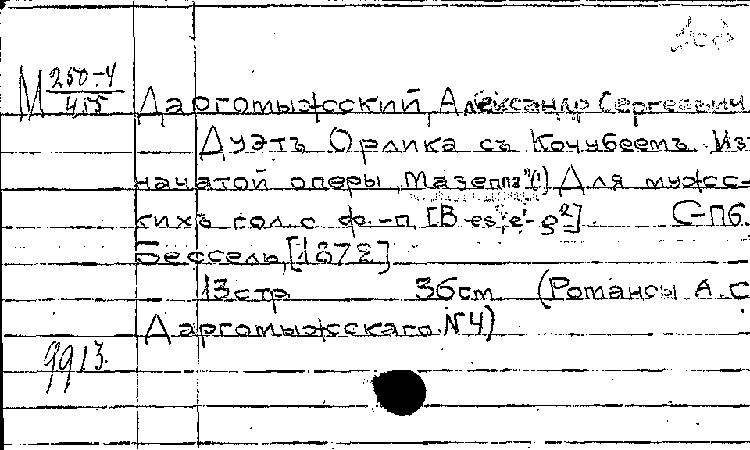 М 250-4
415
Даргомыжский, Александр Сергеевич
Дуэтъ Орлика съ Кочубеемъ. Из
начатой оперы „Мазепа"(!) Для мужс-
кихъ гол. с ф.-п. [B-es', e'-g²]. С-Пб.
Бессель, [1872]
13 стр 36 см (Романсы А. С
Даргомыжскаго. №4)
9913.